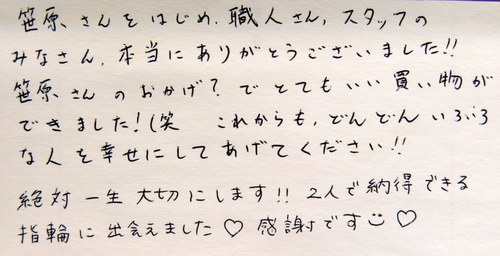 笹原さんをはじめ、職人さん、スタッフの
みなさん、本当にありがとうございました!!
笹原さんのおかげ?でとてもいい買い物が
できました!(笑 これからも、どんどんいろいろ
な人を幸せにしてあげてください!!
絶対一生大切にします!!2人で納得できる
指輪に出会えました♡感謝です☺♡